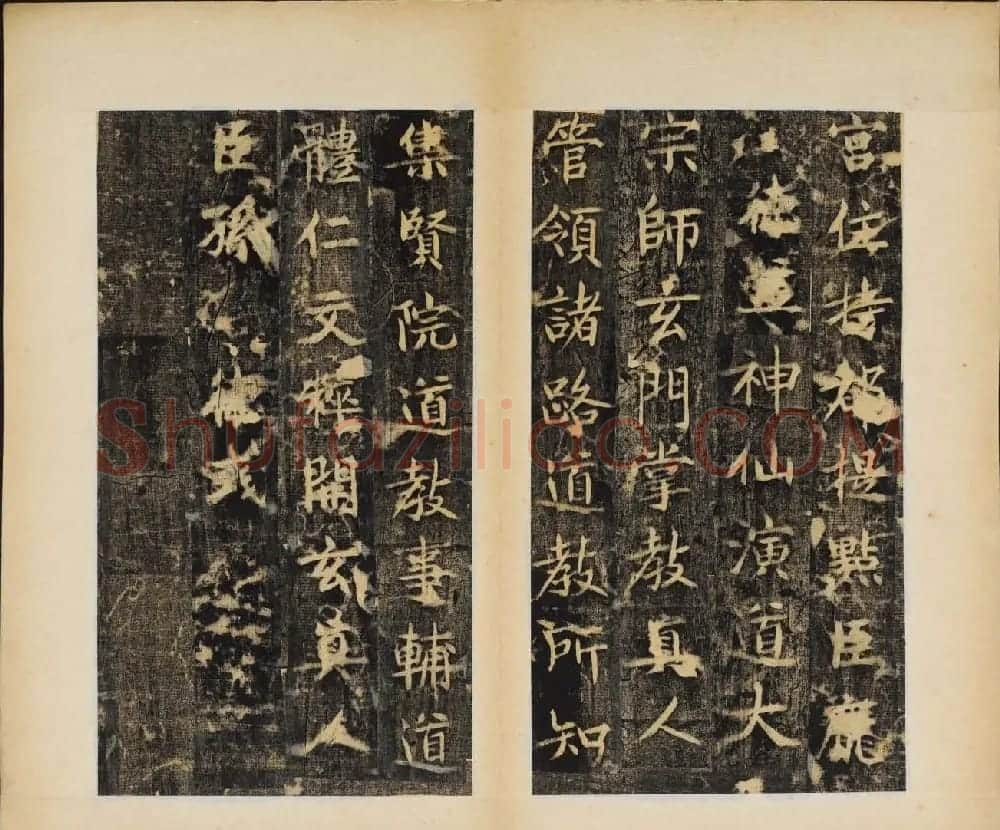 宮住持都提點臣
德 神仙演道大
宗師玄門掌教真人
管領諸路道教所知
集賢院道教事輔道
體仁文粹開玄真人
臣孫德彧
Shufaziliao.COM